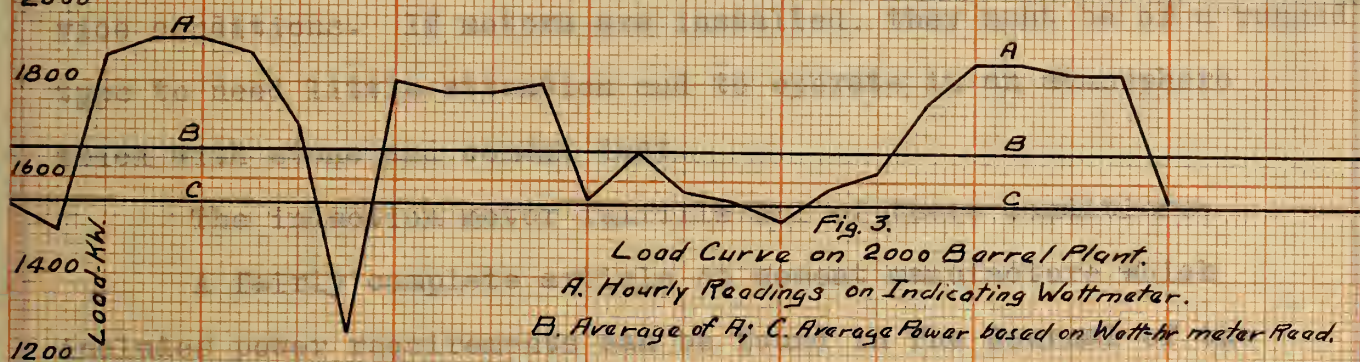 2000
A
A
1800
B
B
1600
C
C
Load-KW.
Fig. 3.
Load Curve on 2000 Barrel Plant.
1400
A. Hourly Readings on Indicating Wattmeter.
B. Average of A; C. Average Power based on Watt-hr meter Read.
1200